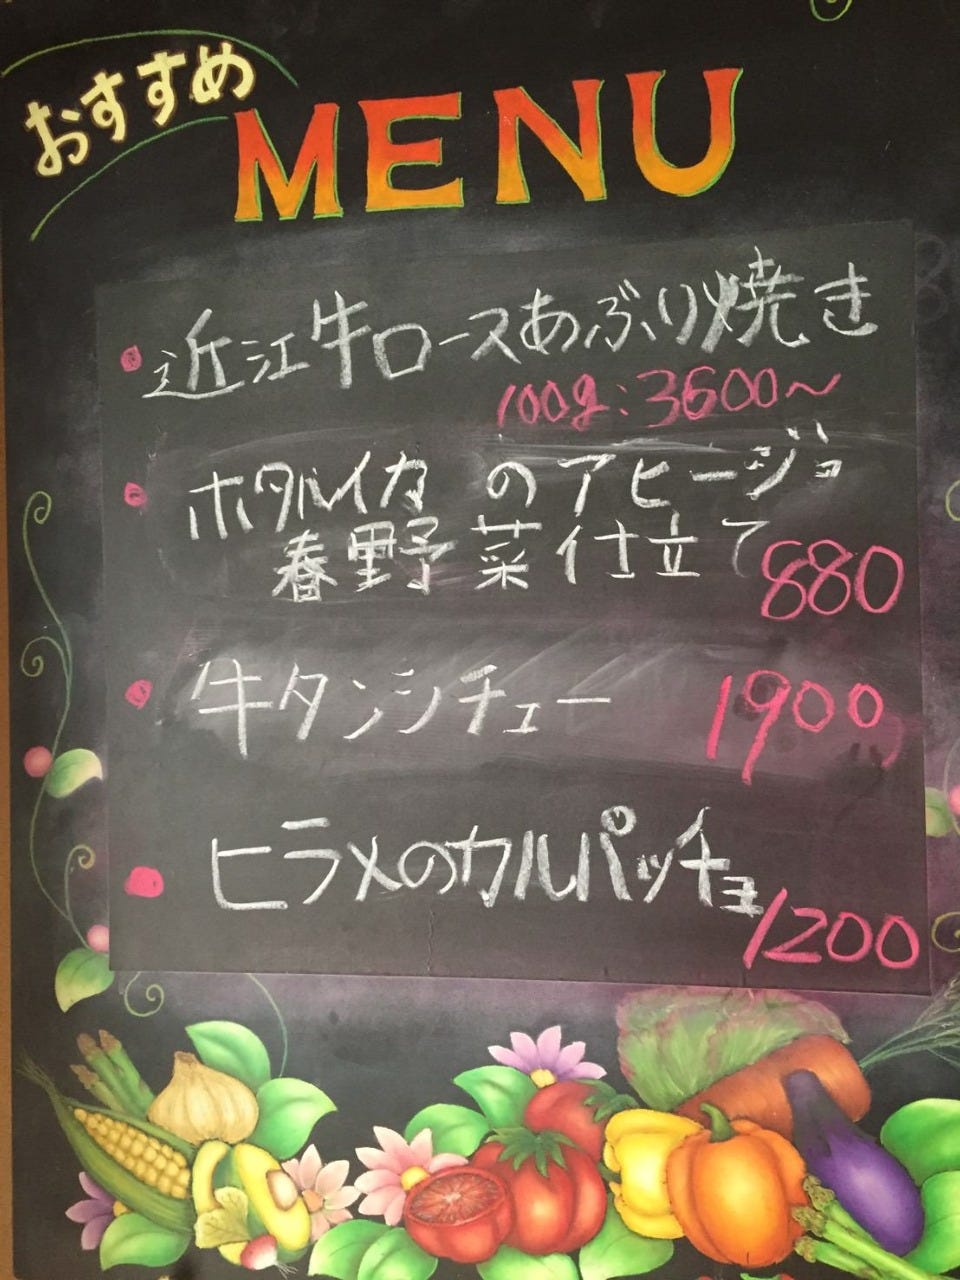 おすすめ
MENU
近江牛ロースあぶり焼き
100g:3600〜
ホタルイカのアヒージョ
春野菜仕立て
880
牛タンシチュー 1900
ヒラメのカルパッチョ
1200